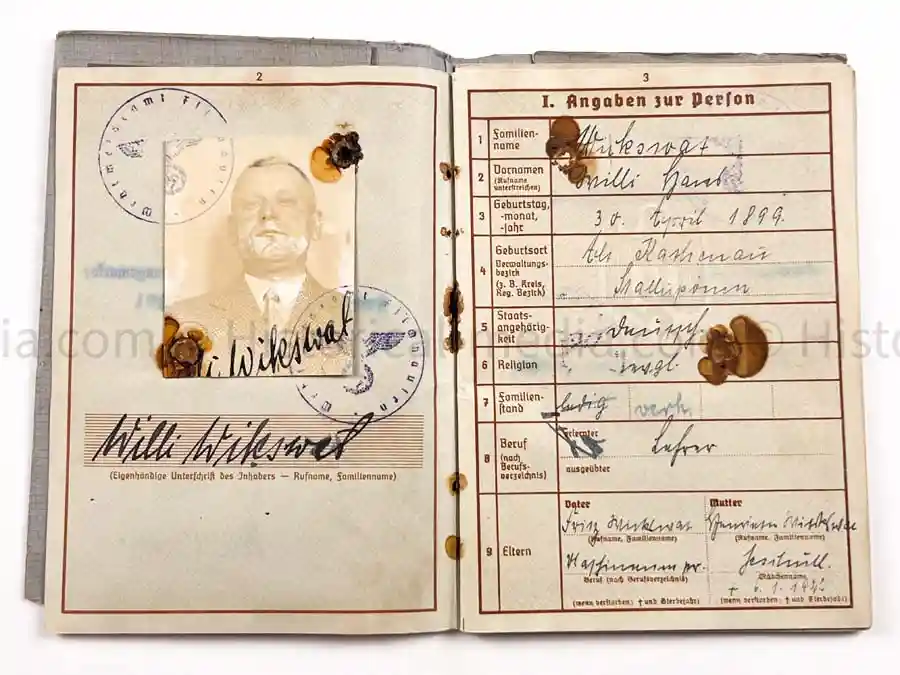 2
Wehrmeldeamt
Wikswat
Willi Wikswat
(Eigenhändige Unterschrift des Inhabers — Rufname, Familienname)
3
I. Angaben zur Person
1 Familienname Wikswat
2 Vornamen (Rufname unterstreichen) Willi Hans
3 Geburtstag, -monat, -jahr 30. April 1899.
4 Geburtsort
Verwaltungsbezirk (z. B. Kreis, Reg. Bezirk) Stallupönen
5 Staatsangehörigkeit deutsch
6 Religion evgl.
7 Familienstand ledig verh.
8 Beruf (nach Berufsverzeichnis) erlernter Lehrer
ausgeübter
9 Eltern
Vater Mutter
Fritz Wikswat
(Rufname, Familienname) (Rufname, Familienname)
Beruf (nach Berufsverzeichnis) Mädchenname
(wenn verstorben: † und Sterbejahr) (wenn verstorben: † und Sterbejahr)